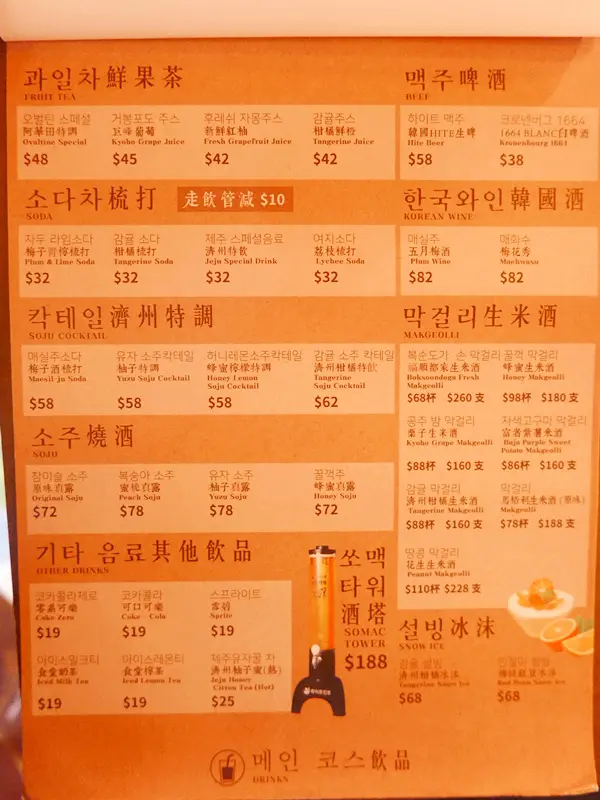 과일차鮮果茶
FRUIT TEA
오벌틴 스페셜
阿華田特調
Ovaltine Special
$48
거봉포도 주스
巨峰葡萄
Kyoho Grape Juice
$45
후레쉬 자몽주스
新鮮紅柚
Fresh Grapefruit Juice
$42
감귤주스
柑橘鮮橙
Tangerine Juice
$42
소다차梳打
走飲管減 $10
SODA
자두 라임소다
梅子青檸梳打
Plum & Lime Soda
$32
감귤 소다
柑橘梳打
Tangerine Soda
$32
제주 스페셜음료
濟州特飲
Jeju Special Drink
$32
여지소다
荔枝梳打
Lychee Soda
$32
칵테일濟州特調
SOJU COCKTAIL
매실주소다
梅子酒梳打
Maesil-ju Soda
$58
유자 소주칵테일
柚子特調
Yuzu Soju Cocktail
$58
허니레몬소주칵테일
蜂蜜檸檬特調
Honey Lemon
Soju Cocktail
$58
감귤 소주 칵테일
濟州柑橘特飲
Tangerine
Soju Cocktail
$62
소주燒酒
SOJU
참이슬 소주
原味真露
Original Soju
$72
복숭아 소주
蜜桃真露
Peach Soju
$78
유자 소주
柚子真露
Yuzu Soju
$78
꿀꺽주
蜂蜜真露
Honey Soju
$72
기타 음료其他飲品
OTHER DRINKS
코카콜라제로
零系可樂
Coke Zero
$19
코카콜라
可口可樂
Coke - Cola
$19
스프라이트
雪碧
Sprite
$19
아이스밀크티
食堂奶茶
Iced Milk Tea
$19
아이스레몬티
食堂檸茶
Iced Lemon Tea
$19
제주유자꿀 차
濟州柚子蜜(熱)
Jeju Honey
Citron Tea (Hot)
$25
쏘맥
타워
酒塔
SOMAC
TOWER
$188
맥주啤酒
BEEF
하이트 맥주
韓國HITE生啤
Hite Beer
$58
크로넨버그 1664
1664 BLANC白啤酒
Kronenbourg 1664
$38
한국와인韓國酒
KOREAN WINE
매실주
五月梅酒
Plum Wine
$82
매화수
梅花秀
Maehwasu
$82
막걸리生米酒
MAKGEOLLI
복순도가 손 막걸리
福順都家生米酒
Boksoondoga Fresh
Makgeolli
$68杯 $260 支
꿀꺽 막걸리
蜂蜜生米酒
Honey Makgeolli
$98杯 $180 支
공주 밤 막걸리
栗子生米酒
Kyoho Grape Makgeolli
$88杯 $160 支
자색고구마 막걸리
富者紫薯米酒
Buja Purple Sweet
Potato Makgeolli
$86杯 $160 支
감귤 막걸리
濟州柑橘生米酒
Tangerine Makgeolli
$88杯 $160 支
막걸리
馬格利生米酒 (原味)
Makgeolli
$78杯 $188 支
땅콩 막걸리
花生生米酒
Peanut Makgeolli
$110杯 $228 支
설빙冰沫
SNOW ICE
감귤 설빙
濟州柑橘冰沫
Tangerine Snow Ice
$68
Red Bean Snow Ice
$68
메인 코스飲品
DRINKS